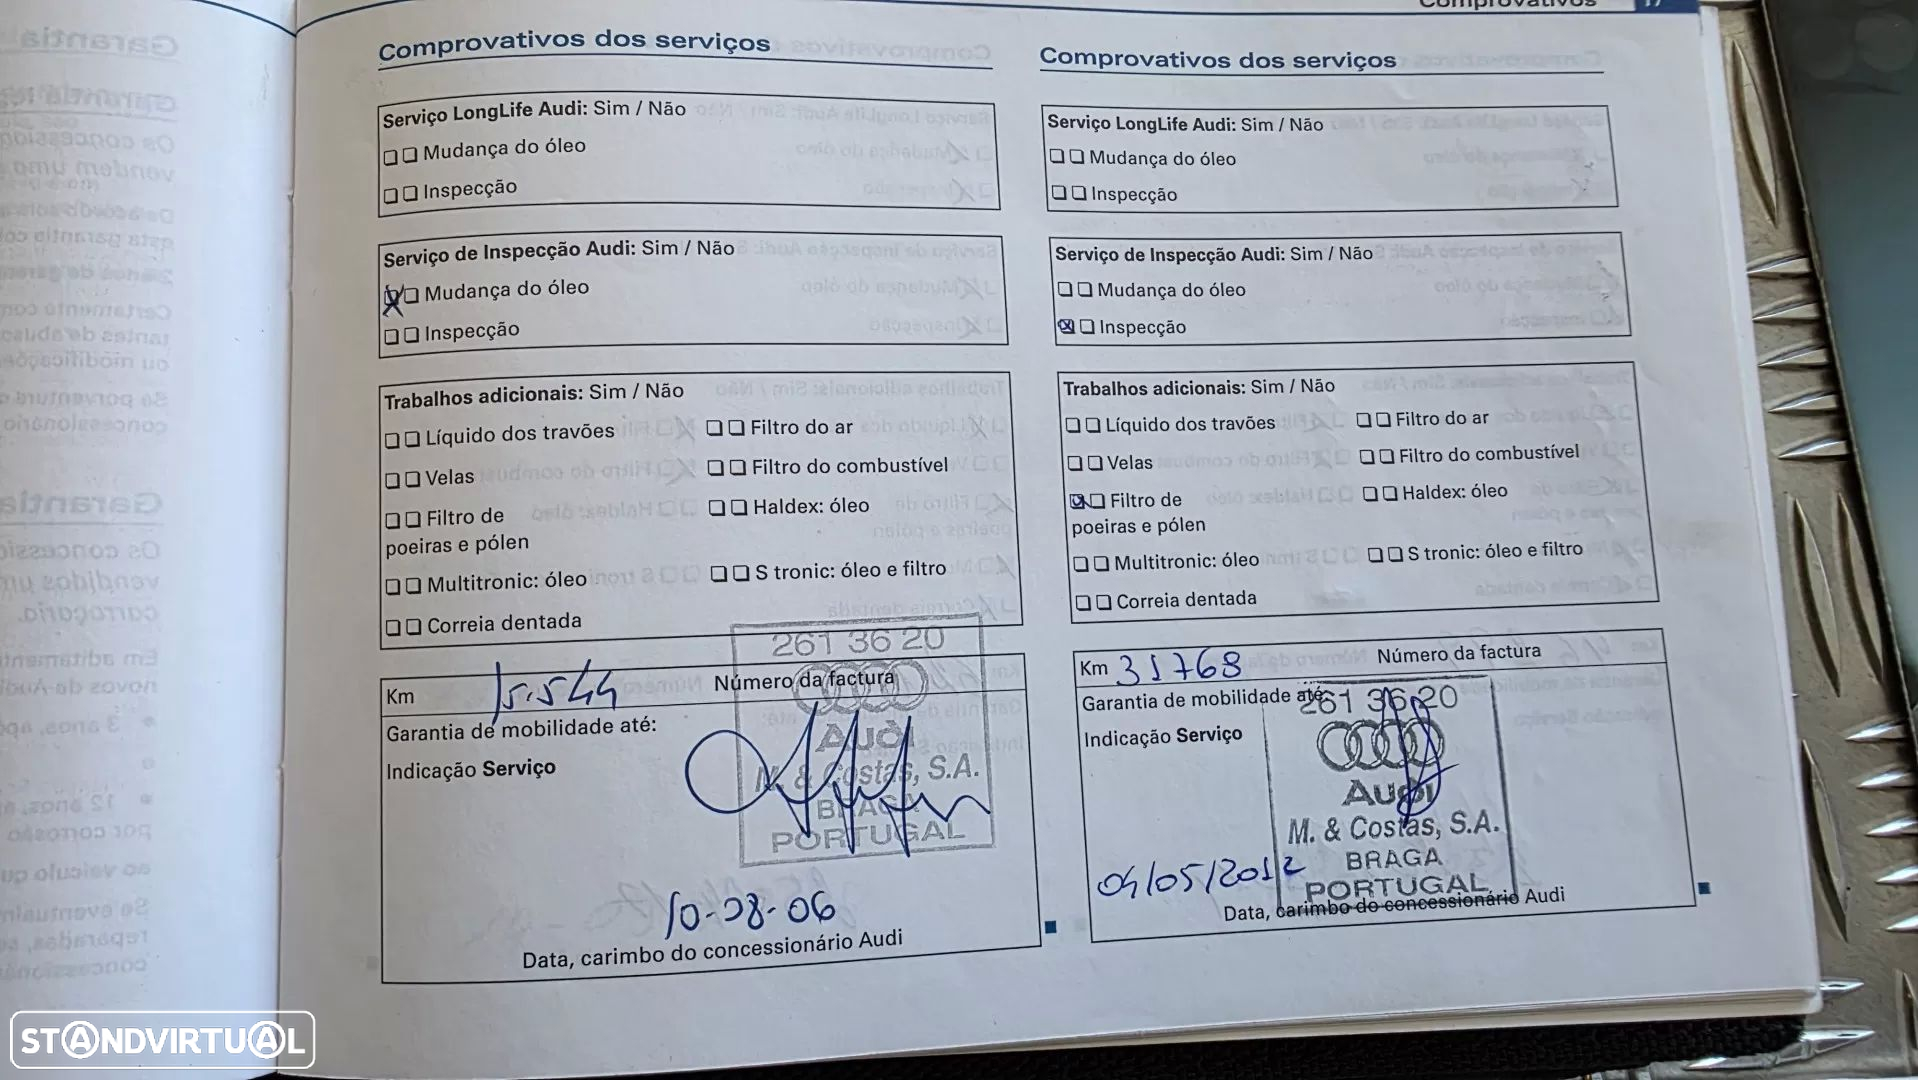 Comprovativos 17
Comprovativos dos serviços
Serviço LongLife Audi: Sim / Não
Mudança do óleo
Inspecção
Serviço de Inspecção Audi: Sim / Não
Mudança do óleo
Inspecção
Trabalhos adicionais: Sim / Não
Líquido dos travões Filtro do ar
Velas Filtro do combustível
Filtro de Haldex: óleo
poeiras e pólen
Multitronic: óleo S tronic: óleo e filtro
Correia dentada
261 36 20
Km 15.544 Número da factura
Garantia de mobilidade até:
Audi
Indicação Serviço
M. & Costas, S.A.
BRAGA
PORTUGAL
10-08-06
Data, carimbo do concessionário Audi
Comprovativos dos serviços
Serviço LongLife Audi: Sim / Não
Mudança do óleo
Inspecção
Serviço de Inspecção Audi: Sim / Não
Mudança do óleo
Inspecção
Trabalhos adicionais: Sim / Não
Líquido dos travões Filtro do ar
Velas Filtro do combustível
Filtro de Haldex: óleo
poeiras e pólen
Multitronic: óleo S tronic: óleo e filtro
Correia dentada
Km 31768 Número da factura
Garantia de mobilidade até:
261 36 20
Indicação Serviço
Audi
M. & Costas, S.A.
BRAGA
PORTUGAL
04/05/2012
Data, carimbo do concessionário Audi
STANDVIRTUAL